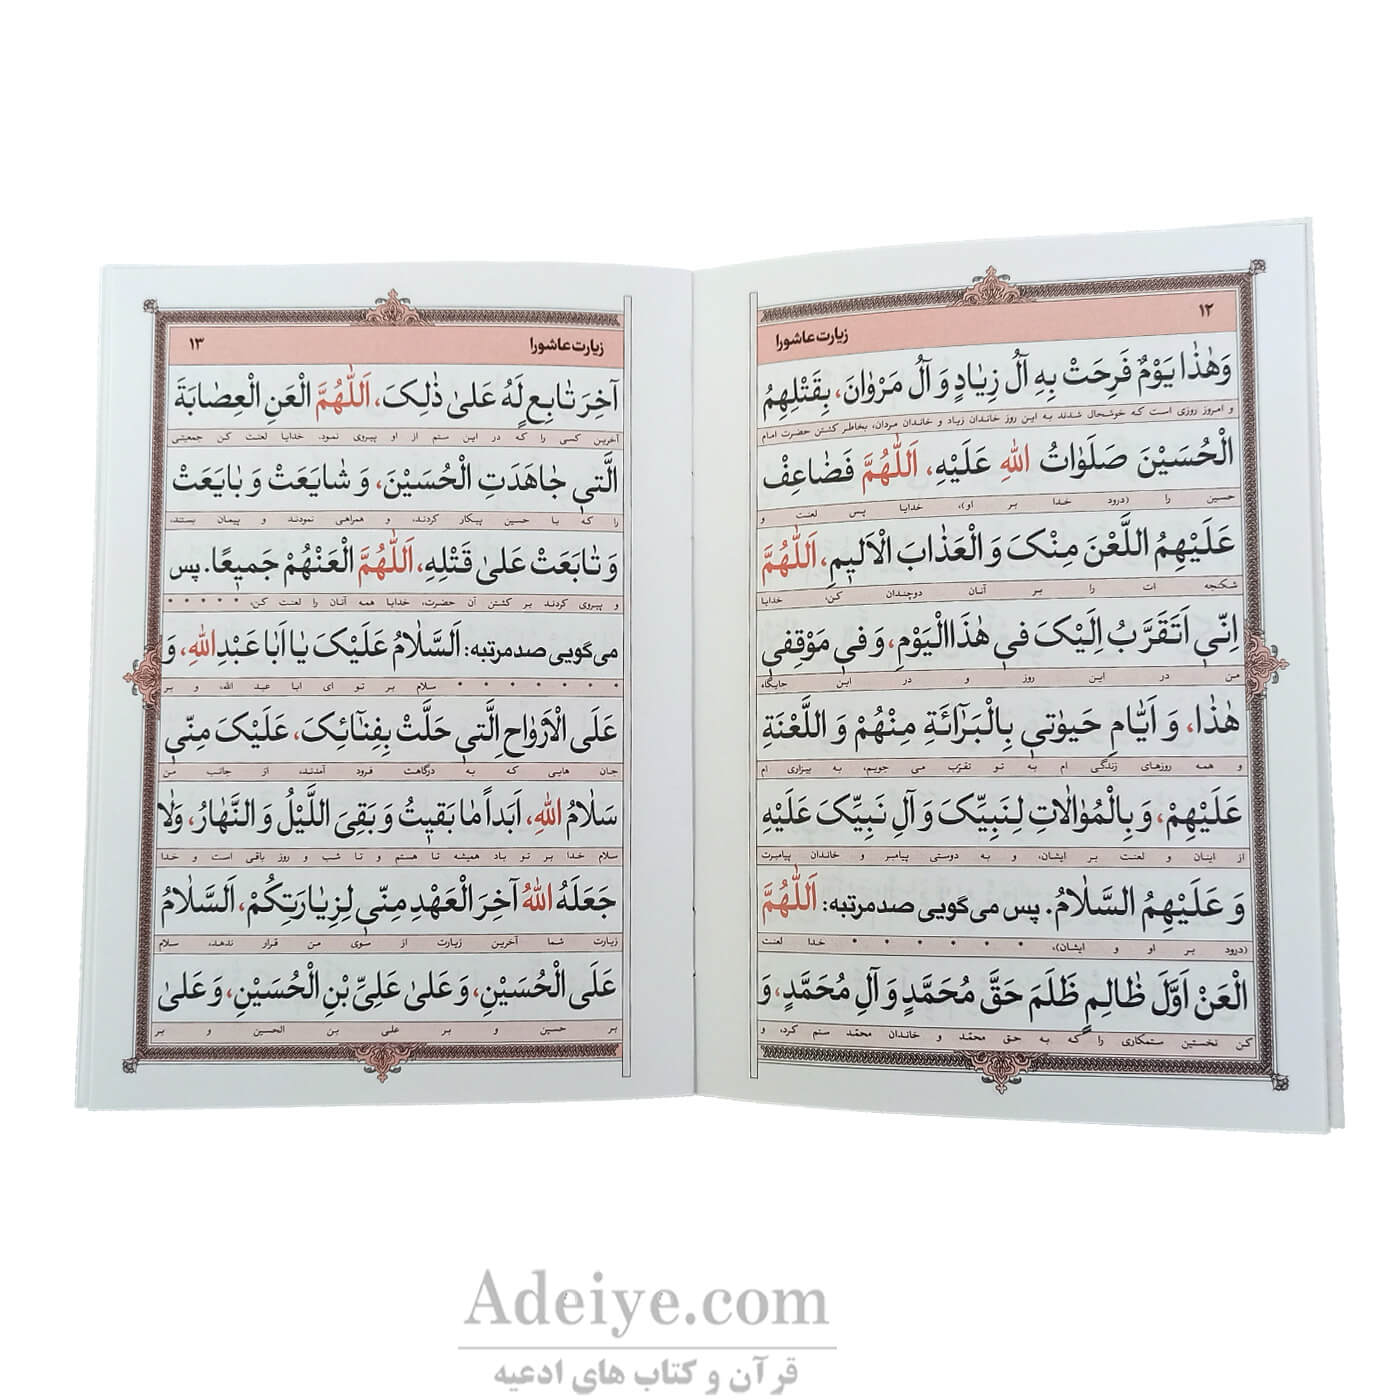 ۱۲
زیارت عاشورا
وَهٰذٰا یَوْمٌ فَرِحَتْ بِهِ آلُ زِیٰادٍ وَ آلُ مَرْوٰانَ، بِقَتْلِهِمُ
و امروز روزی است که خوشحال شدند به این روز خاندان زیاد و خاندان مردان، بخاطر کشتن حضرت امام
الْحُسَیْنَ صَلَوٰاتُ اللهِ عَلَیْهِ، اَللّٰهُمَّ فَضٰاعِفْ
حسین را (درود خدا بر او)، خدایا پس لعنت و
عَلَیْهِمُ اللَّعْنَ مِنْکَ وَ الْعَذٰابَ الْاَلیٖمِ، اَللّٰهُمَّ
شکنجه ات را بر آنان دوچندان کن، خدایا
اِنّیٖ اَتَقَرَّبُ اِلَیْکَ فیٖ هٰذَا الْیَوْمِ، وَ فیٖ مَوْقِفیٖ
من در این روز و در این جایگاه
هٰذٰا، وَ اَیّٰامِ حَیٰوتیٖ بِالْبَرٰٓائَةِ مِنْهُمْ وَ اللَّعْنَةِ
و همه روزهای زندگی ام به تو تقرّب می جویم، به بیزاری ام
عَلَیْهِمْ، وَ بِالْمُوٰالٰاتِ لِنَبِیِّکَ وَ آلِ نَبِیِّکَ عَلَیْهِ
از اینان و لعنت بر ایشان، و به دوستی پیامبر و خاندان پیامبرت
وَ عَلَیْهِمُ السَّلٰامُ. پس می‌گویی صد مرتبه: اَللّٰهُمَّ
(درود بر او و ایشان)، * * * * * * * خدا لعنت
الْعَنْ اَوَّلَ ظٰالِمٍ ظَلَمَ حَقَّ مُحَمَّدٍ وَ آلِ مُحَمَّدٍ، وَ
کن نخستین ستمکاری را که به حق محمّد و خاندان محمّد ستم کرد، و
زیارت عاشورا
۱۳
آخِرَ تٰابِعٍ لَهُ عَلیٰ ذٰلِکَ، اَللّٰهُمَّ الْعَنِ الْعِصٰابَةَ
آخرین کسی را که در این ستم از او پیروی نمود. خدایا لعنت کن جمعیتی
الَّتیٖ جٰاهَدَتِ الْحُسَیْنَ، وَ شٰایَعَتْ وَ بٰایَعَتْ
را که با حسین پیکار کردند، و همراهی نمودند و پیمان بستند،
وَ تٰابَعَتْ عَلیٰ قَتْلِهِ، اَللّٰهُمَّ الْعَنْهُمْ جَمیٖعًا. پس
و پیروی کردند بر کشتن آن حضرت، خدایا همه آنان را لعنت کن، * * * * *
می‌گویی صد مرتبه: اَلسَّلٰامُ عَلَیْکَ یٰا اَبٰا عَبْدِ اللهِ، وَ
* * * * * * * سلام بر تو ای ابا عبد الله، و بر
عَلَی الْاَرْوٰاحِ الَّتیٖ حَلَّتْ بِفِنٰٓائِکَ، عَلَیْکَ مِنّیٖ
جان هایی که به درگاهت فرود آمدند، از جانب من
سَلٰامُ اللهِ، اَبَداً مٰا بَقیٖتُ وَ بَقِیَ اللَّیْلُ وَ النَّهٰارُ، وَ لٰا
سلام خدا بر تو باد همیشه تا هستم و تا شب و روز باقی است و خدا
جَعَلَهُ اللهُ آخِرَ الْعَهْدِ مِنّیٖ لِزِیٰارَتِکُمْ، اَلسَّلٰامُ
زیارت شما آخرین زیارت از سوی من قرار ندهد، سلام
عَلَی الْحُسَیْنِ، وَ عَلیٰ عَلِیِّ بْنِ الْحُسَیْنِ، وَ عَلیٰ
بر حسین و بر علی بن الحسین و بر
Adeiye.com
قرآن و کتاب های ادعیه